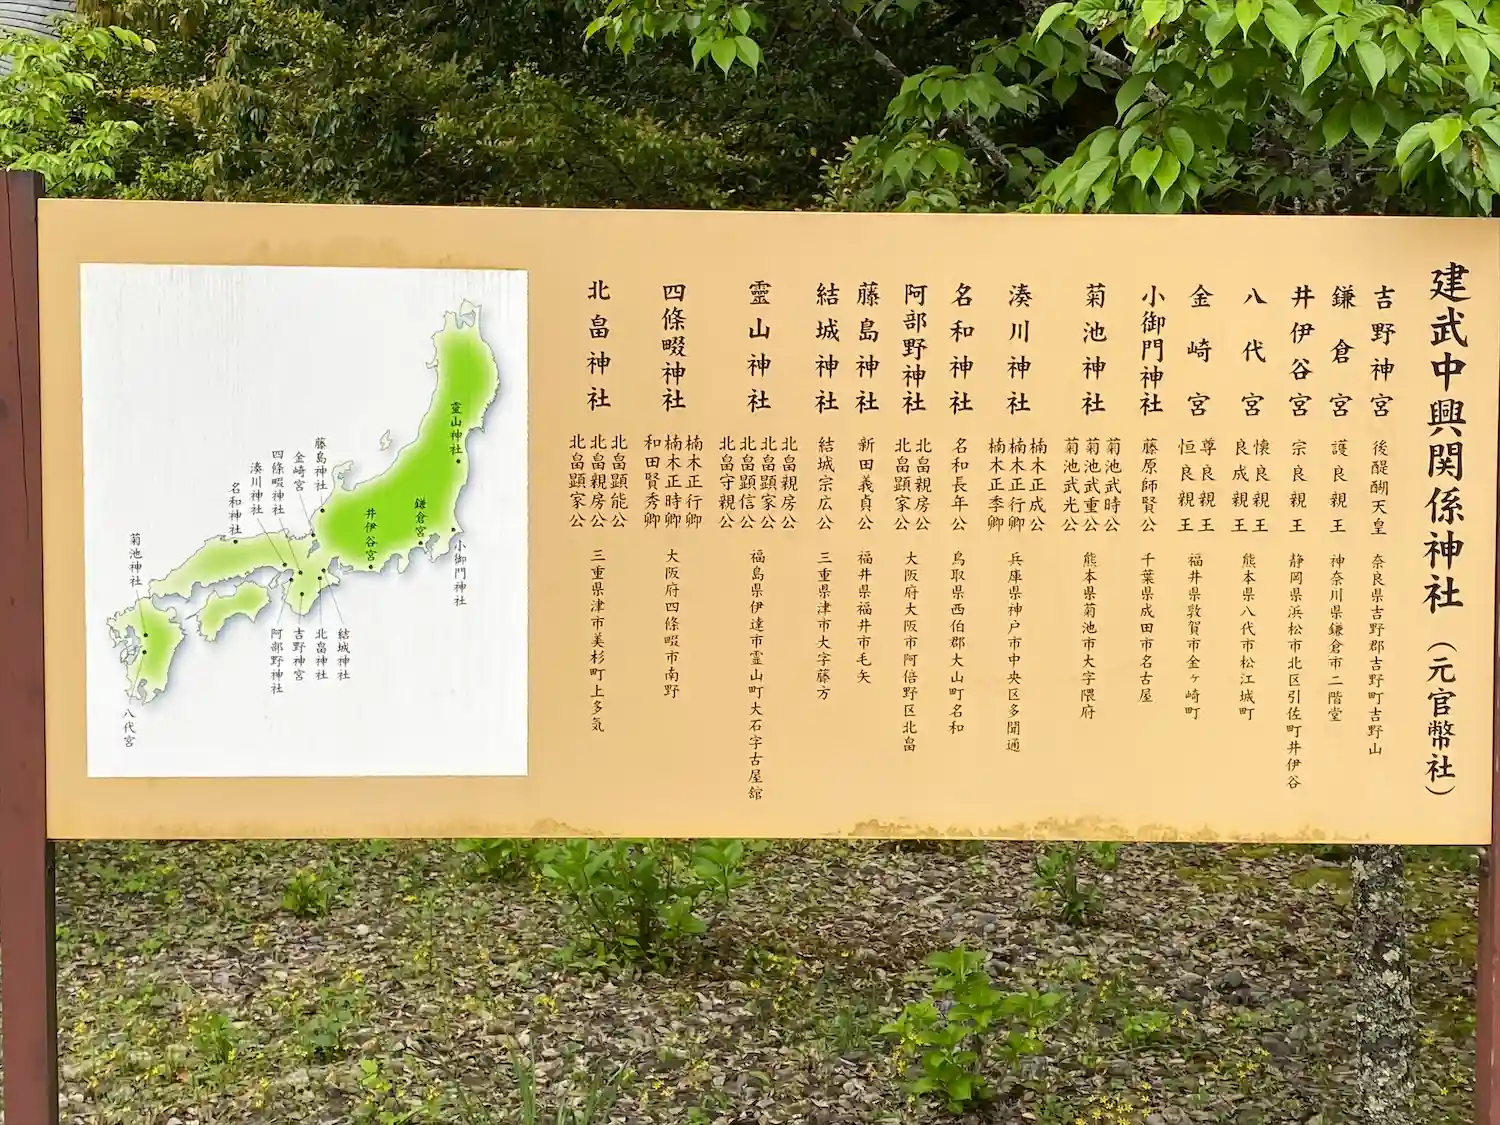 建武中興関係神社（元官幣社）
吉野神宮
後醍醐天皇
奈良県吉野郡吉野町吉野山
鎌倉宮
護良親王
神奈川県鎌倉市二階堂
井伊谷宮
宗良親王
静岡県浜松市北区引佐町井伊谷
八代宮
懐良親王
良成親王
熊本県八代市松江城町
金崎宮
尊良親王
恒良親王
福井県敦賀市金ヶ崎町
小御門神社
藤原師賢公
千葉県成田市名古屋
菊池神社
菊池武時公
菊池武重公
菊池武光公
熊本県菊池市大字隈府
湊川神社
楠木正成公
楠木正行卿
楠木正季卿
兵庫県神戸市中央区多聞通
名和神社
名和長年公
鳥取県西伯郡大山町名和
阿部野神社
北畠親房公
北畠顕家公
大阪府大阪市阿倍野区北畠
藤島神社
新田義貞公
福井県福井市毛矢
結城神社
結城宗広公
三重県津市大字藤方
靈山神社
北畠親房公
北畠顕家公
北畠顕信公
北畠守親公
福島県伊達市霊山町大石字古屋舘
四條畷神社
楠木正行卿
楠木正時卿
和田賢秀卿
大阪府四條畷市南野
北畠神社
北畠顕能公
北畠親房公
北畠顕家公
三重県津市美杉町上多気
靈山神社
鎌倉宮
小御門神社
井伊谷宮
藤島神社
金崎宮
四條畷神社
湊川神社
名和神社
菊池神社
結城神社
北畠神社
吉野神宮
阿部野神社
八代宮